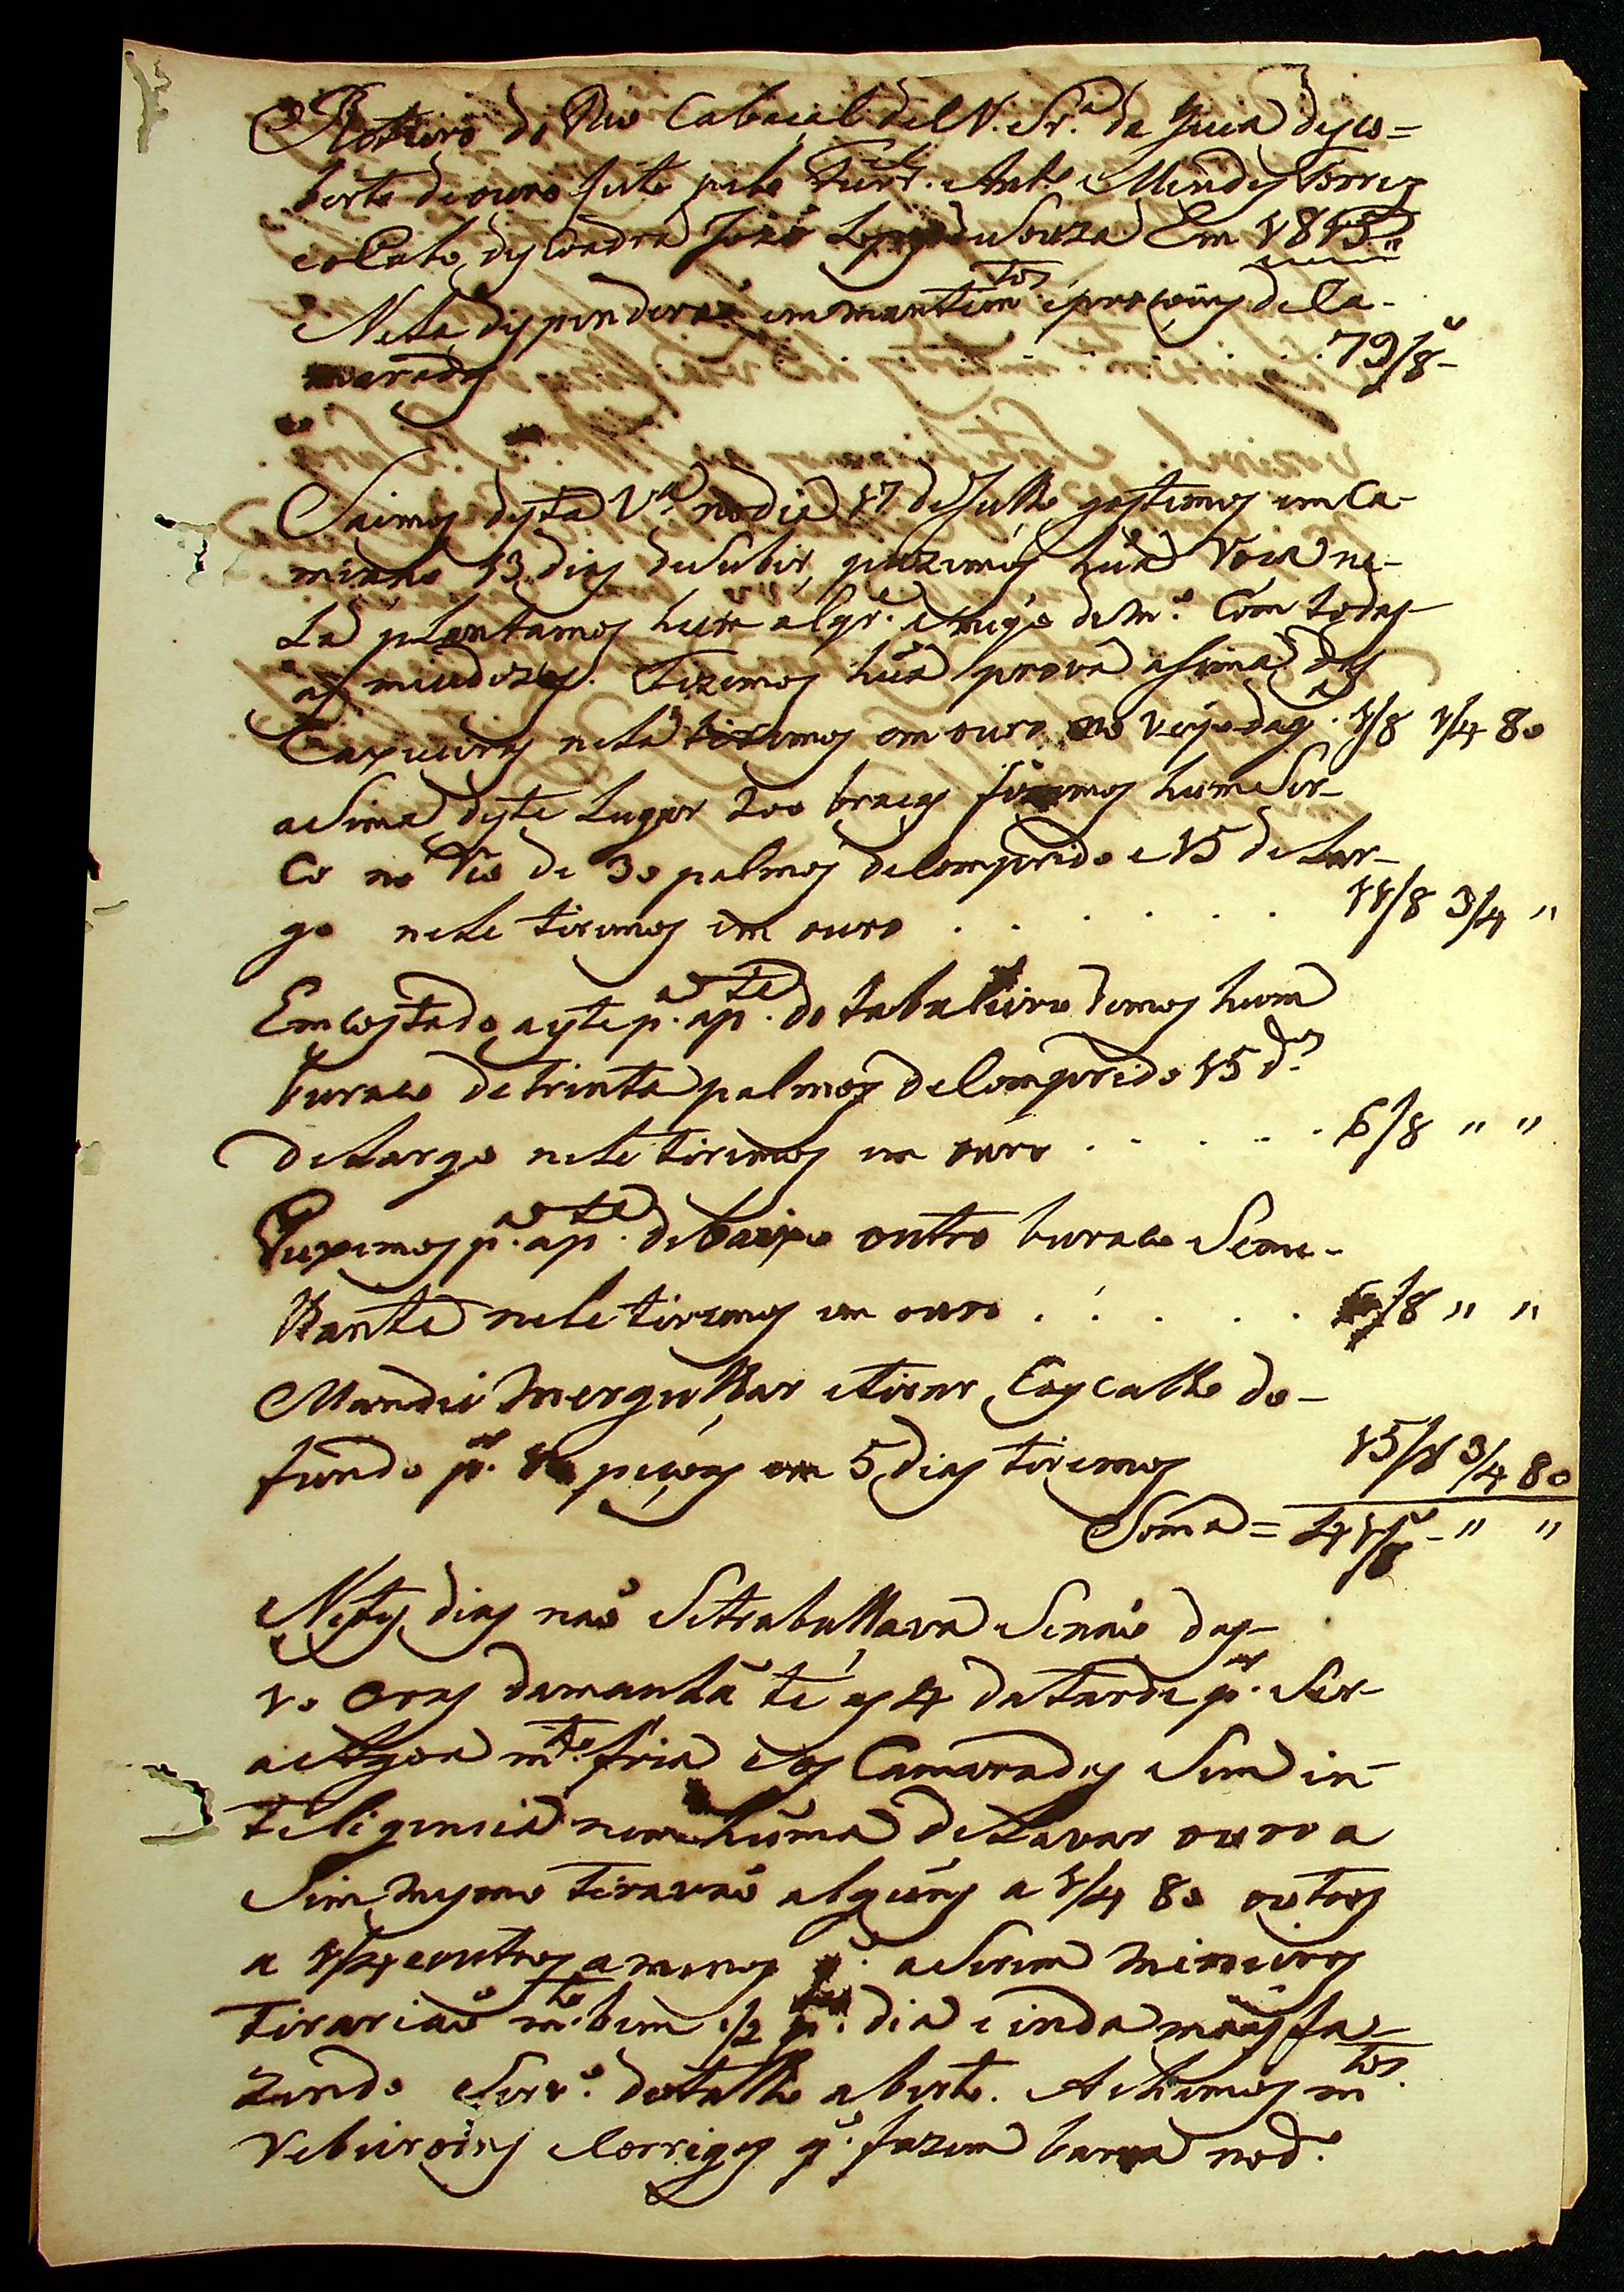 Roteiro do Rio Cabaçal de N. Sr.ª da Guia desco=
berto de ouro feito pelo Furr.el Ant.o Mendes Torres
e o Cabo desCoadra João Lopes de Souza Em 1815"
Nela dispenderão em mantim.tos e precizos de Ca-
maradas . . . . . . . 79/8.as
Saimos desta V.ª no dia 17 de Julho gastemos em Ca-
minho 13 dias de Subir, puzemos hũa Rosa ne-
La plantamos hum alqr.e e meyo de m.o Com todas
as miudezas. Fizemos hũa prova asima das
Capueiras nela tiremos em ouro no veyo dag.ª 1/8 1/4 80
a Sima deste Lugar 200 braças fizemos hum Ser-
Co no Rio de 30 palmos de Comprido e 15 de Lar-
go nele tiremos em ouro . . . . . . 11/8 3/4 "
Emcostado a este p.ª a p.te do tabaleiro demos hum
buraco de trinta palmos de Comprido 15 d.os
de Largo nele tiremos em ouro . . . . . 6/8 " "
Puxemos p.ª a p.te de baixo outro buraco Seme-
lhante nele tiremos em ouro . . . . . 6/8 " "
Mandei merguLhar e tirar Cascalho do
fundo p.r peçoas em 5 dias tiremos 15/8 3/4 80
Soma = 41/8.as " "
Nestes dias não Setrabalhava Senão das
10 Oras damanhã té as 4 da tarde p.r Ser
a Agoa m.to fria e os Camaradas Sem in-
teligencia nem huma de Lavar ouro a
Sim mesmo tiravão alguns a 1/4 80 outros
a 1/4 e outros a menos q. a Serem Mineiros
tirarião m.to bem 1/2 p.r dia e inda mais fa-
zendo Serv.o de talho aberto. Achemos m.tos
Reburoins e Corrigos q.e fazem barra no d.o